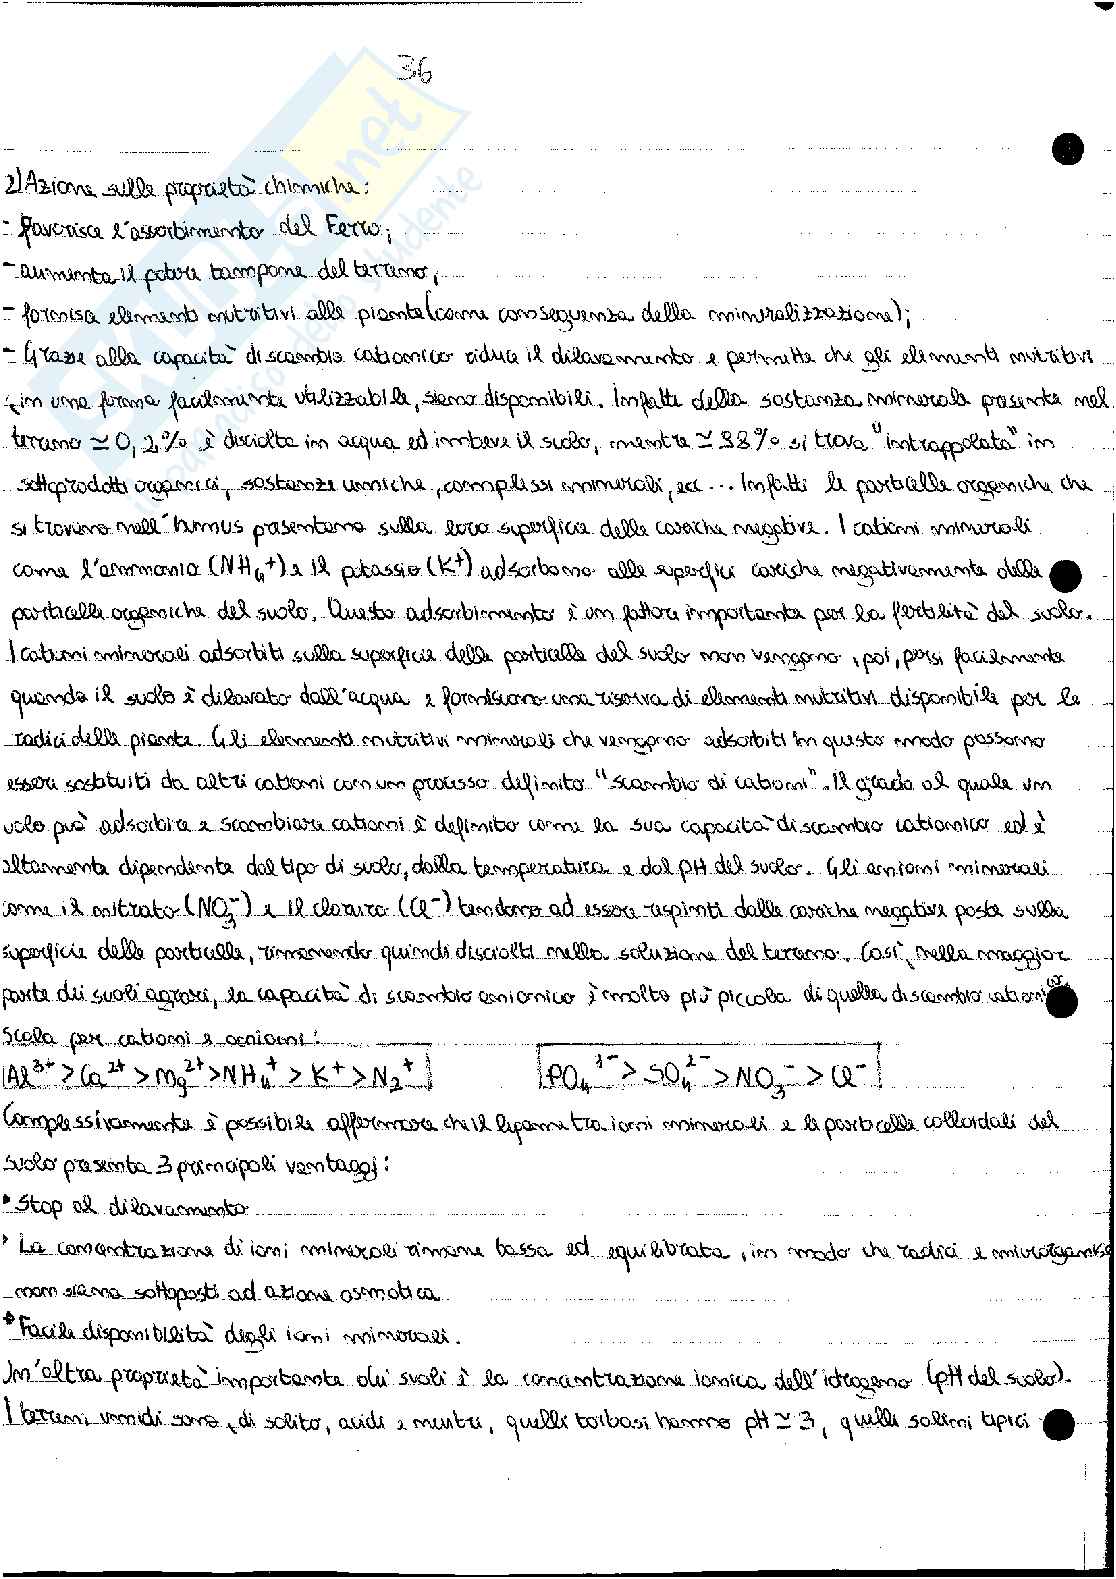 36
2) Azione sulle proprietà chimiche:
- favorisce l'assorbimento del Ferro;
- aumenta il potere tampone del terreno;
- fornisce elementi nutritivi alle piante (come conseguenza della mineralizzazione);
- Grazie alla capacità di scambio cationico riduce il dilavamento e permette che gli elementi nutritivi
, in una forma facilmente utilizzabile, siano disponibili. Infatti della sostanza minerale presente nel
terreno ≃ 0,2% è disciolta in acqua ed imbeve il suolo, mentre ≃ 98% si trova "intrappolata" in
sottoprodotti organici, sostanze umiche, complessi minerali, ecc... Infatti le particelle organiche che
si trovano nell'humus presentano sulla loro superficie delle cariche negative. I cationi minerali
come l'ammonio (NH₄⁺) e il potassio (K⁺) adsorbono alle superfici cariche negativamente delle
particelle organiche del suolo. Questo adsorbimento è un fattore importante per la fertilità del suolo.
I cationi minerali adsorbiti sulla superficie delle particelle del suolo non vengono, poi, persi facilmente
quando il suolo è dilavato dall'acqua e forniscono una riserva di elementi nutritivi disponibile per le
radici delle piante. Gli elementi nutritivi minerali che vengono adsorbiti in questo modo possono
essere sostituiti da altri cationi con un processo definito "scambio di cationi". Il grado al quale un
uolo può adsorbire e scambiare cationi è definito come la sua capacità di scambio cationico ed è
altamente dipendente dal tipo di suolo, dalla temperatura e dal pH del suolo. Gli anioni minerali
come il nitrato (NO₃⁻) e il cloruro (Cl⁻) tendono ad essere respinti dalle cariche negative poste sulla
superficie delle particelle, rimanendo quindi disciolti nella soluzione del terreno. Così, nella maggior
parte dei suoli agrari, la capacità di scambio anionico è molto più piccola di quella di scambio cationico
Scala per cationi e anioni:
Al³⁺ > Ca²⁺ > Mg²⁺ > NH₄⁺ > K⁺ > N₂⁺ PO₄³⁻ > SO₄²⁻ > NO₃⁻ > Cl⁻
Complessivamente è possibile affermare che il legame tra ioni minerali e le particelle colloidali del
suolo presenta 3 principali vantaggi:
• Stop al dilavamento
• La concentrazione di ioni minerali rimane bassa ed equilibrata, in modo che radici e microrganis
non siano sottoposti ad azione osmotica
• Facile disponibilità degli ioni minerali.
Un'altra proprietà importante dei suoli è la concentrazione ionica dell'idrogeno (pH del suolo).
I terreni umidi sono, di solito, acidi e mentre, quelli torbosi hanno pH ≃ 3, quelli salini tipici
SKUOLA.net